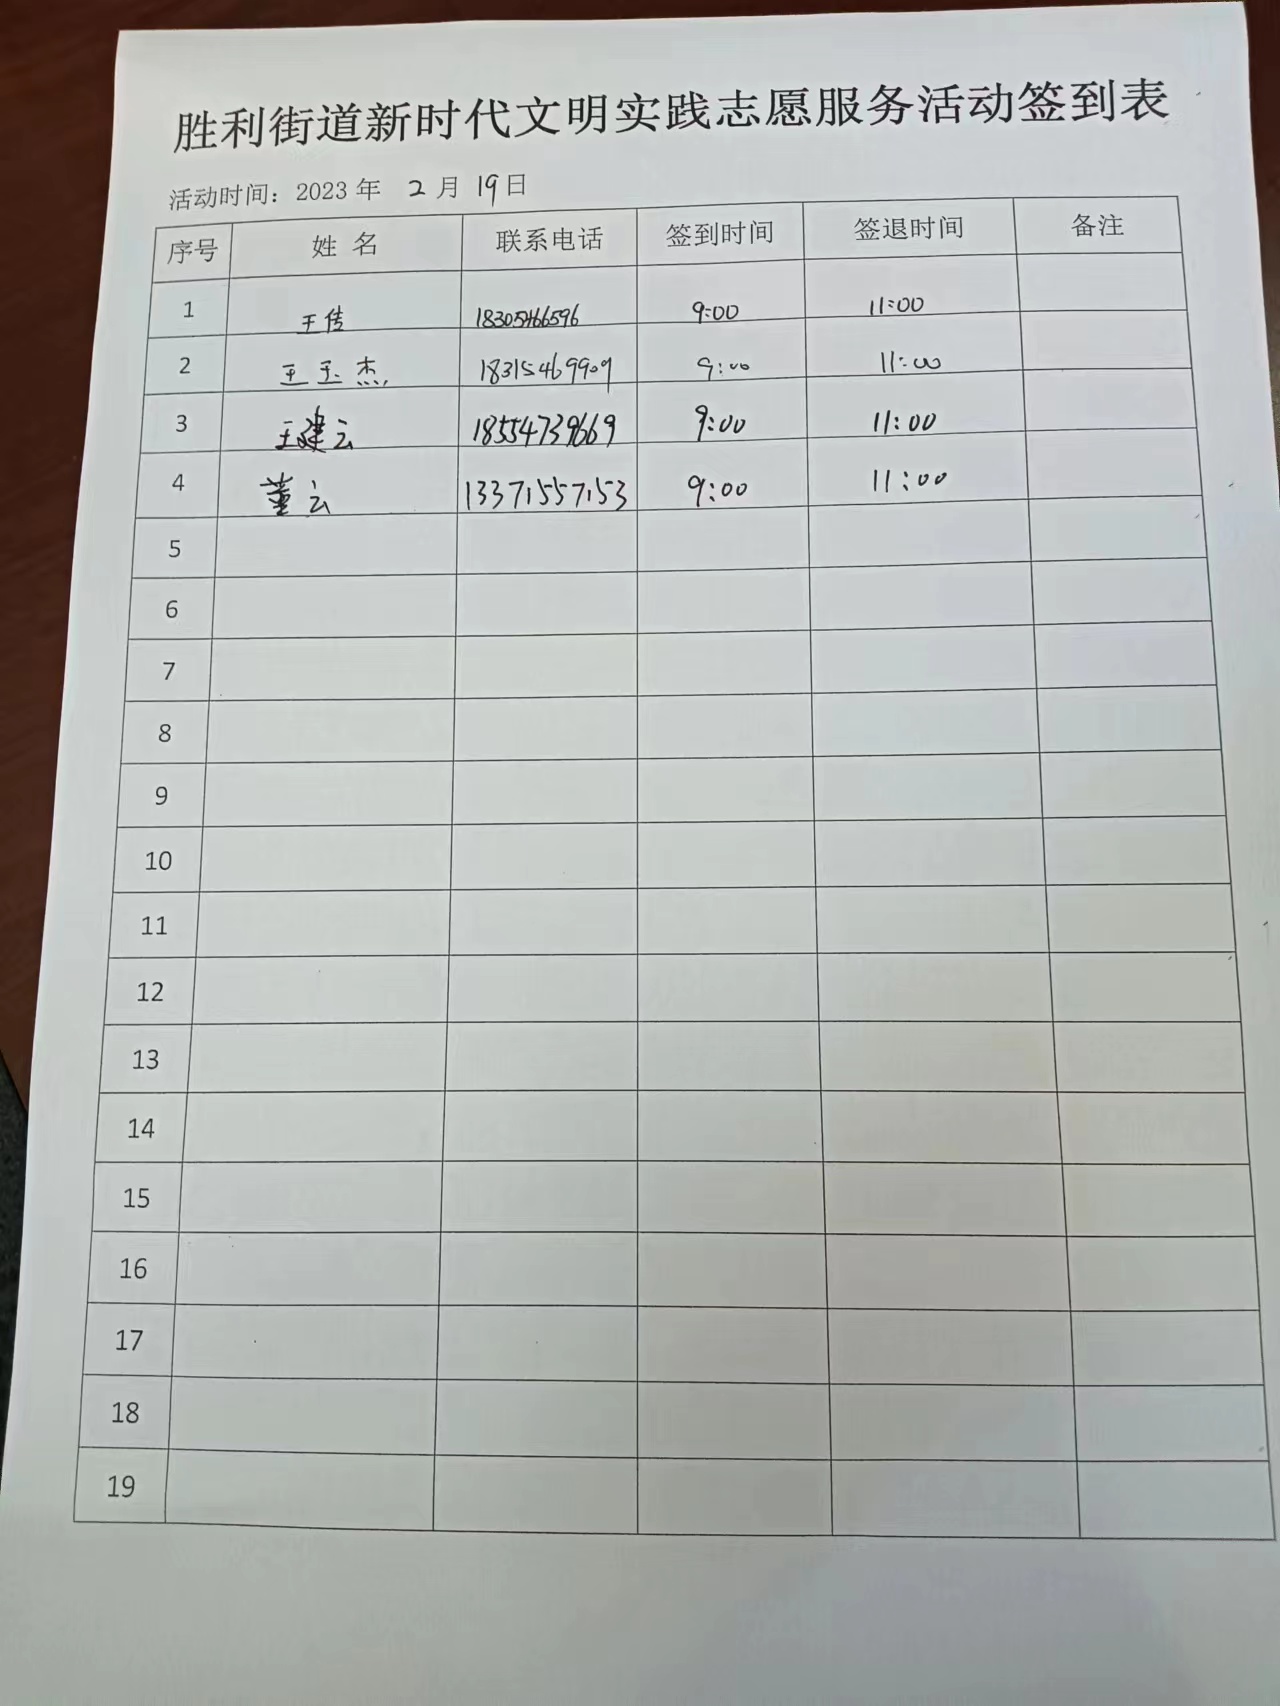 胜利街道新时代文明实践志愿服务活动签到表
活动时间：2023 年 2 月 19 日
序号 姓 名 联系电话 签到时间 签退时间 备注
1 王传 18305466596 9:00 11:00
2 王玉杰 18315469909 9:00 11:00
3 王建云 18554739669 9:00 11:00
4 董云 13371557153 9:00 11:00
5
6
7
8
9
10
11
12
13
14
15
16
17
18
19